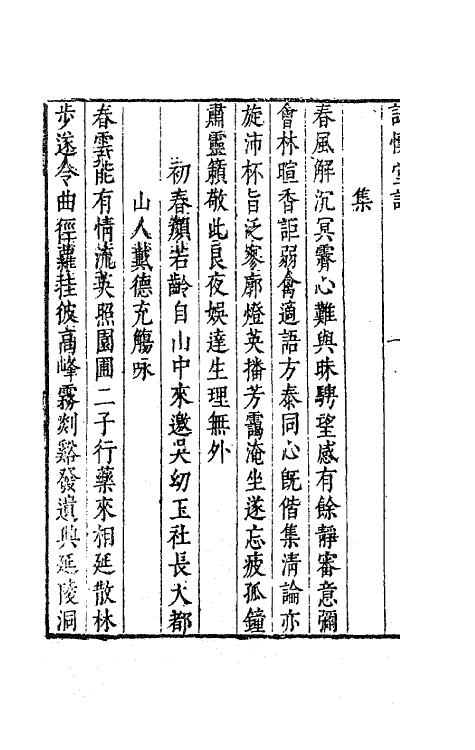 詠懷堂詩
集
春風解沉冥霽心難與昧騁望感有餘靜審意彌
會林暄香詎弱禽適語方泰同心既偕集清論亦
旋沛杯旨泛寥廓燈英播芳靄淹坐遂忘疲孤鐘
肅靈籟敬此良夜娛達生理無外
初春顏若齡自山中來邀吳幼玉社長大都
山人戴德充觴咏
春雲能有情流英照園圃二子行藥來相延散林
步遂令曲徑蘿挂彼高峰霧剡谿發遺興延陵洞